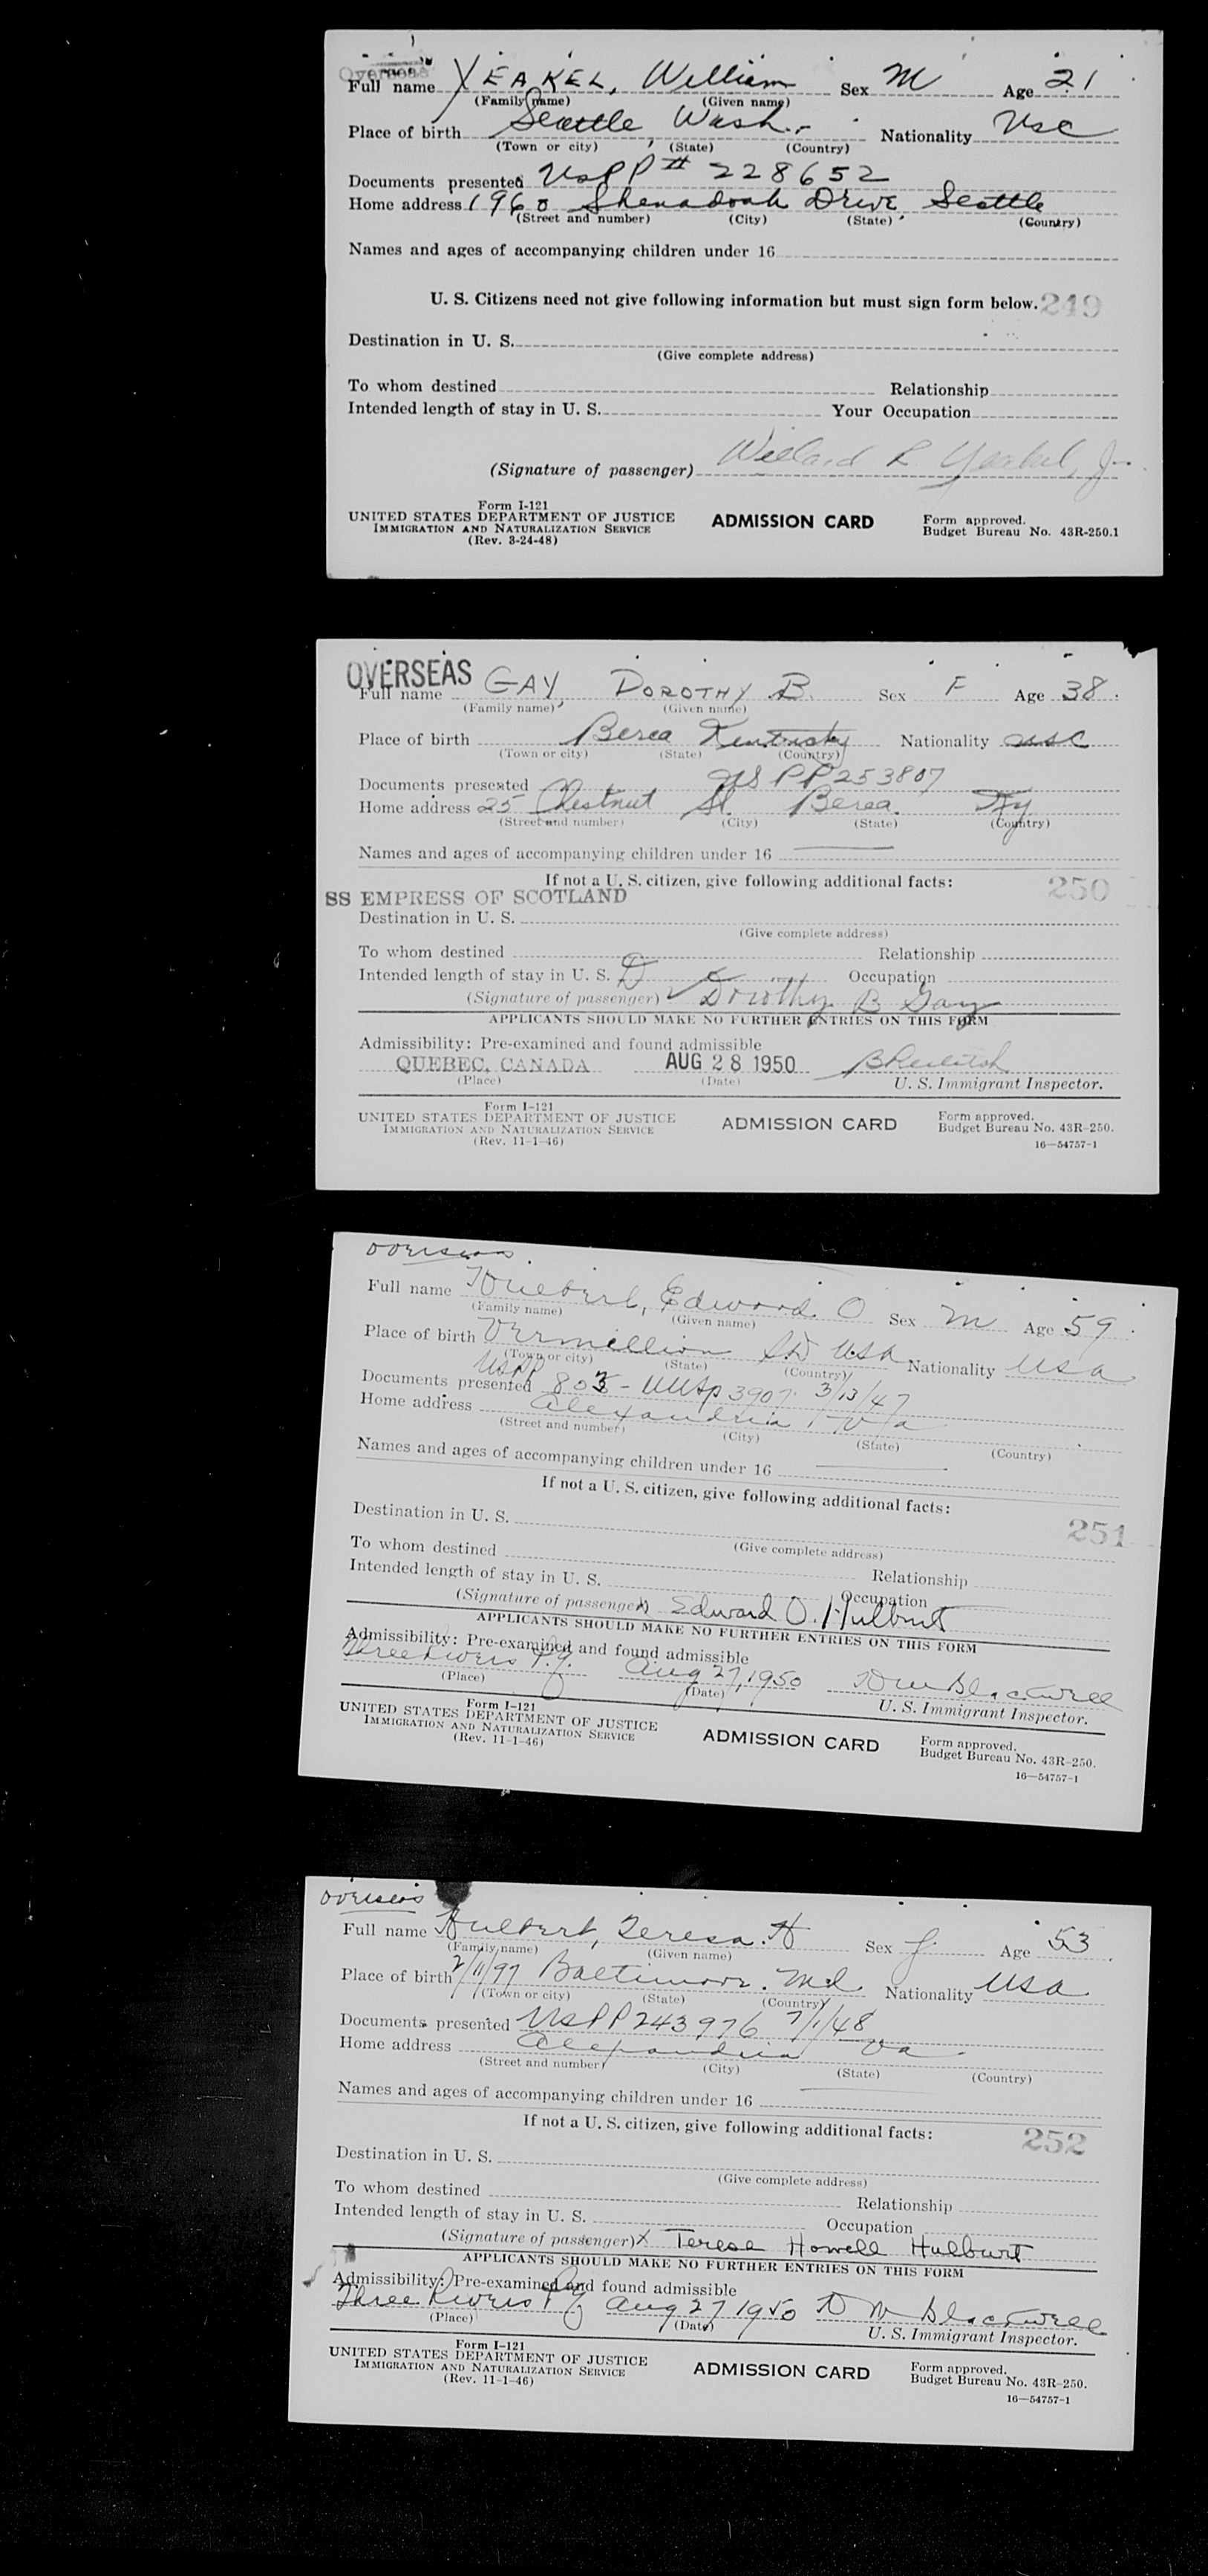 Overseas
Full name YEAKEL, William Sex M Age 21
(Family name) (Given name)
Place of birth Seattle, Wash. Nationality USC
(Town or city) (State) (Country)
Documents presented USPP # 228652
Home address 1960 Shenadoah Drive, Seattle
(Street and number) (City) (State) (Country)
Names and ages of accompanying children under 16
U. S. Citizens need not give following information but must sign form below. 249
Destination in U. S.
(Give complete address)
To whom destined Relationship
Intended length of stay in U. S. Your Occupation
(Signature of passenger) Willard R Yeakel, Jr.
Form I-121
UNITED STATES DEPARTMENT OF JUSTICE
IMMIGRATION AND NATURALIZATION SERVICE
(Rev. 3-24-48)
ADMISSION CARD
Form approved.
Budget Bureau No. 43R-250.1
OVERSEAS
Full name GAY, DOROTHY B. Sex F Age 38
(Family name) (Given name)
Place of birth Berea Kentucky Nationality USC
(Town or city) (State) (Country)
Documents presented US PP 253807
Home address 25 Chestnut St. Berea. Ky
(Street and number) (City) (State) (Country)
Names and ages of accompanying children under 16
If not a U. S. citizen, give following additional facts: 250
SS EMPRESS OF SCOTLAND
Destination in U. S.
(Give complete address)
To whom destined Relationship
Intended length of stay in U. S. Occupation
(Signature of passenger) Dorothy B Gay
APPLICANTS SHOULD MAKE NO FURTHER ENTRIES ON THIS FORM
Admissibility: Pre-examined and found admissible
QUEBEC, CANADA AUG 28 1950
(Place) (Date) U. S. Immigrant Inspector.
Form I-121
UNITED STATES DEPARTMENT OF JUSTICE
IMMIGRATION AND NATURALIZATION SERVICE
(Rev. 11-1-46)
ADMISSION CARD
Form approved.
Budget Bureau No. 43R-250.
16—54757-1
overseas
Full name Hulburt, Edward O Sex M Age 59
(Family name) (Given name)
Place of birth Vermillion SD USA Nationality USA
(Town or city) (State) (Country)
USPP
Documents presented 803 - 3907 3/13/47
Home address Alexandria, Va
(Street and number) (City) (State) (Country)
Names and ages of accompanying children under 16
If not a U. S. citizen, give following additional facts:
Destination in U. S. 251
(Give complete address)
To whom destined Relationship
Intended length of stay in U. S. Occupation
(Signature of passenger) Edward O. Hulburt
APPLICANTS SHOULD MAKE NO FURTHER ENTRIES ON THIS FORM
Admissibility: Pre-examined and found admissible
Three Rivers P.Q. Aug 27, 1950 D W Blackwell
(Place) (Date) U. S. Immigrant Inspector.
Form I-121
UNITED STATES DEPARTMENT OF JUSTICE
IMMIGRATION AND NATURALIZATION SERVICE
(Rev. 11-1-46)
ADMISSION CARD
Form approved.
Budget Bureau No. 43R-250.
16—54757-1
overseas
Full name Hulburt, Teresa H Sex f Age 53
(Family name) (Given name)
Place of birth 2/11/97 Baltimore. Md Nationality USA
(Town or city) (State) (Country)
Documents presented USPP 243976 7/1/48
Home address Alexandria Va
(Street and number) (City) (State) (Country)
Names and ages of accompanying children under 16
If not a U. S. citizen, give following additional facts: 252
Destination in U. S.
(Give complete address)
To whom destined Relationship
Intended length of stay in U. S. Occupation
(Signature of passenger) X Terese Howell Hulburt
APPLICANTS SHOULD MAKE NO FURTHER ENTRIES ON THIS FORM
Admissibility: Pre-examined and found admissible
Three Rivers P.Q. Aug 27 1950 D W Blackwell
(Place) (Date) U. S. Immigrant Inspector.
Form I-121
UNITED STATES DEPARTMENT OF JUSTICE
IMMIGRATION AND NATURALIZATION SERVICE
(Rev. 11-1-46)
ADMISSION CARD
Form approved.
Budget Bureau No. 43R-250.
16—54757-1